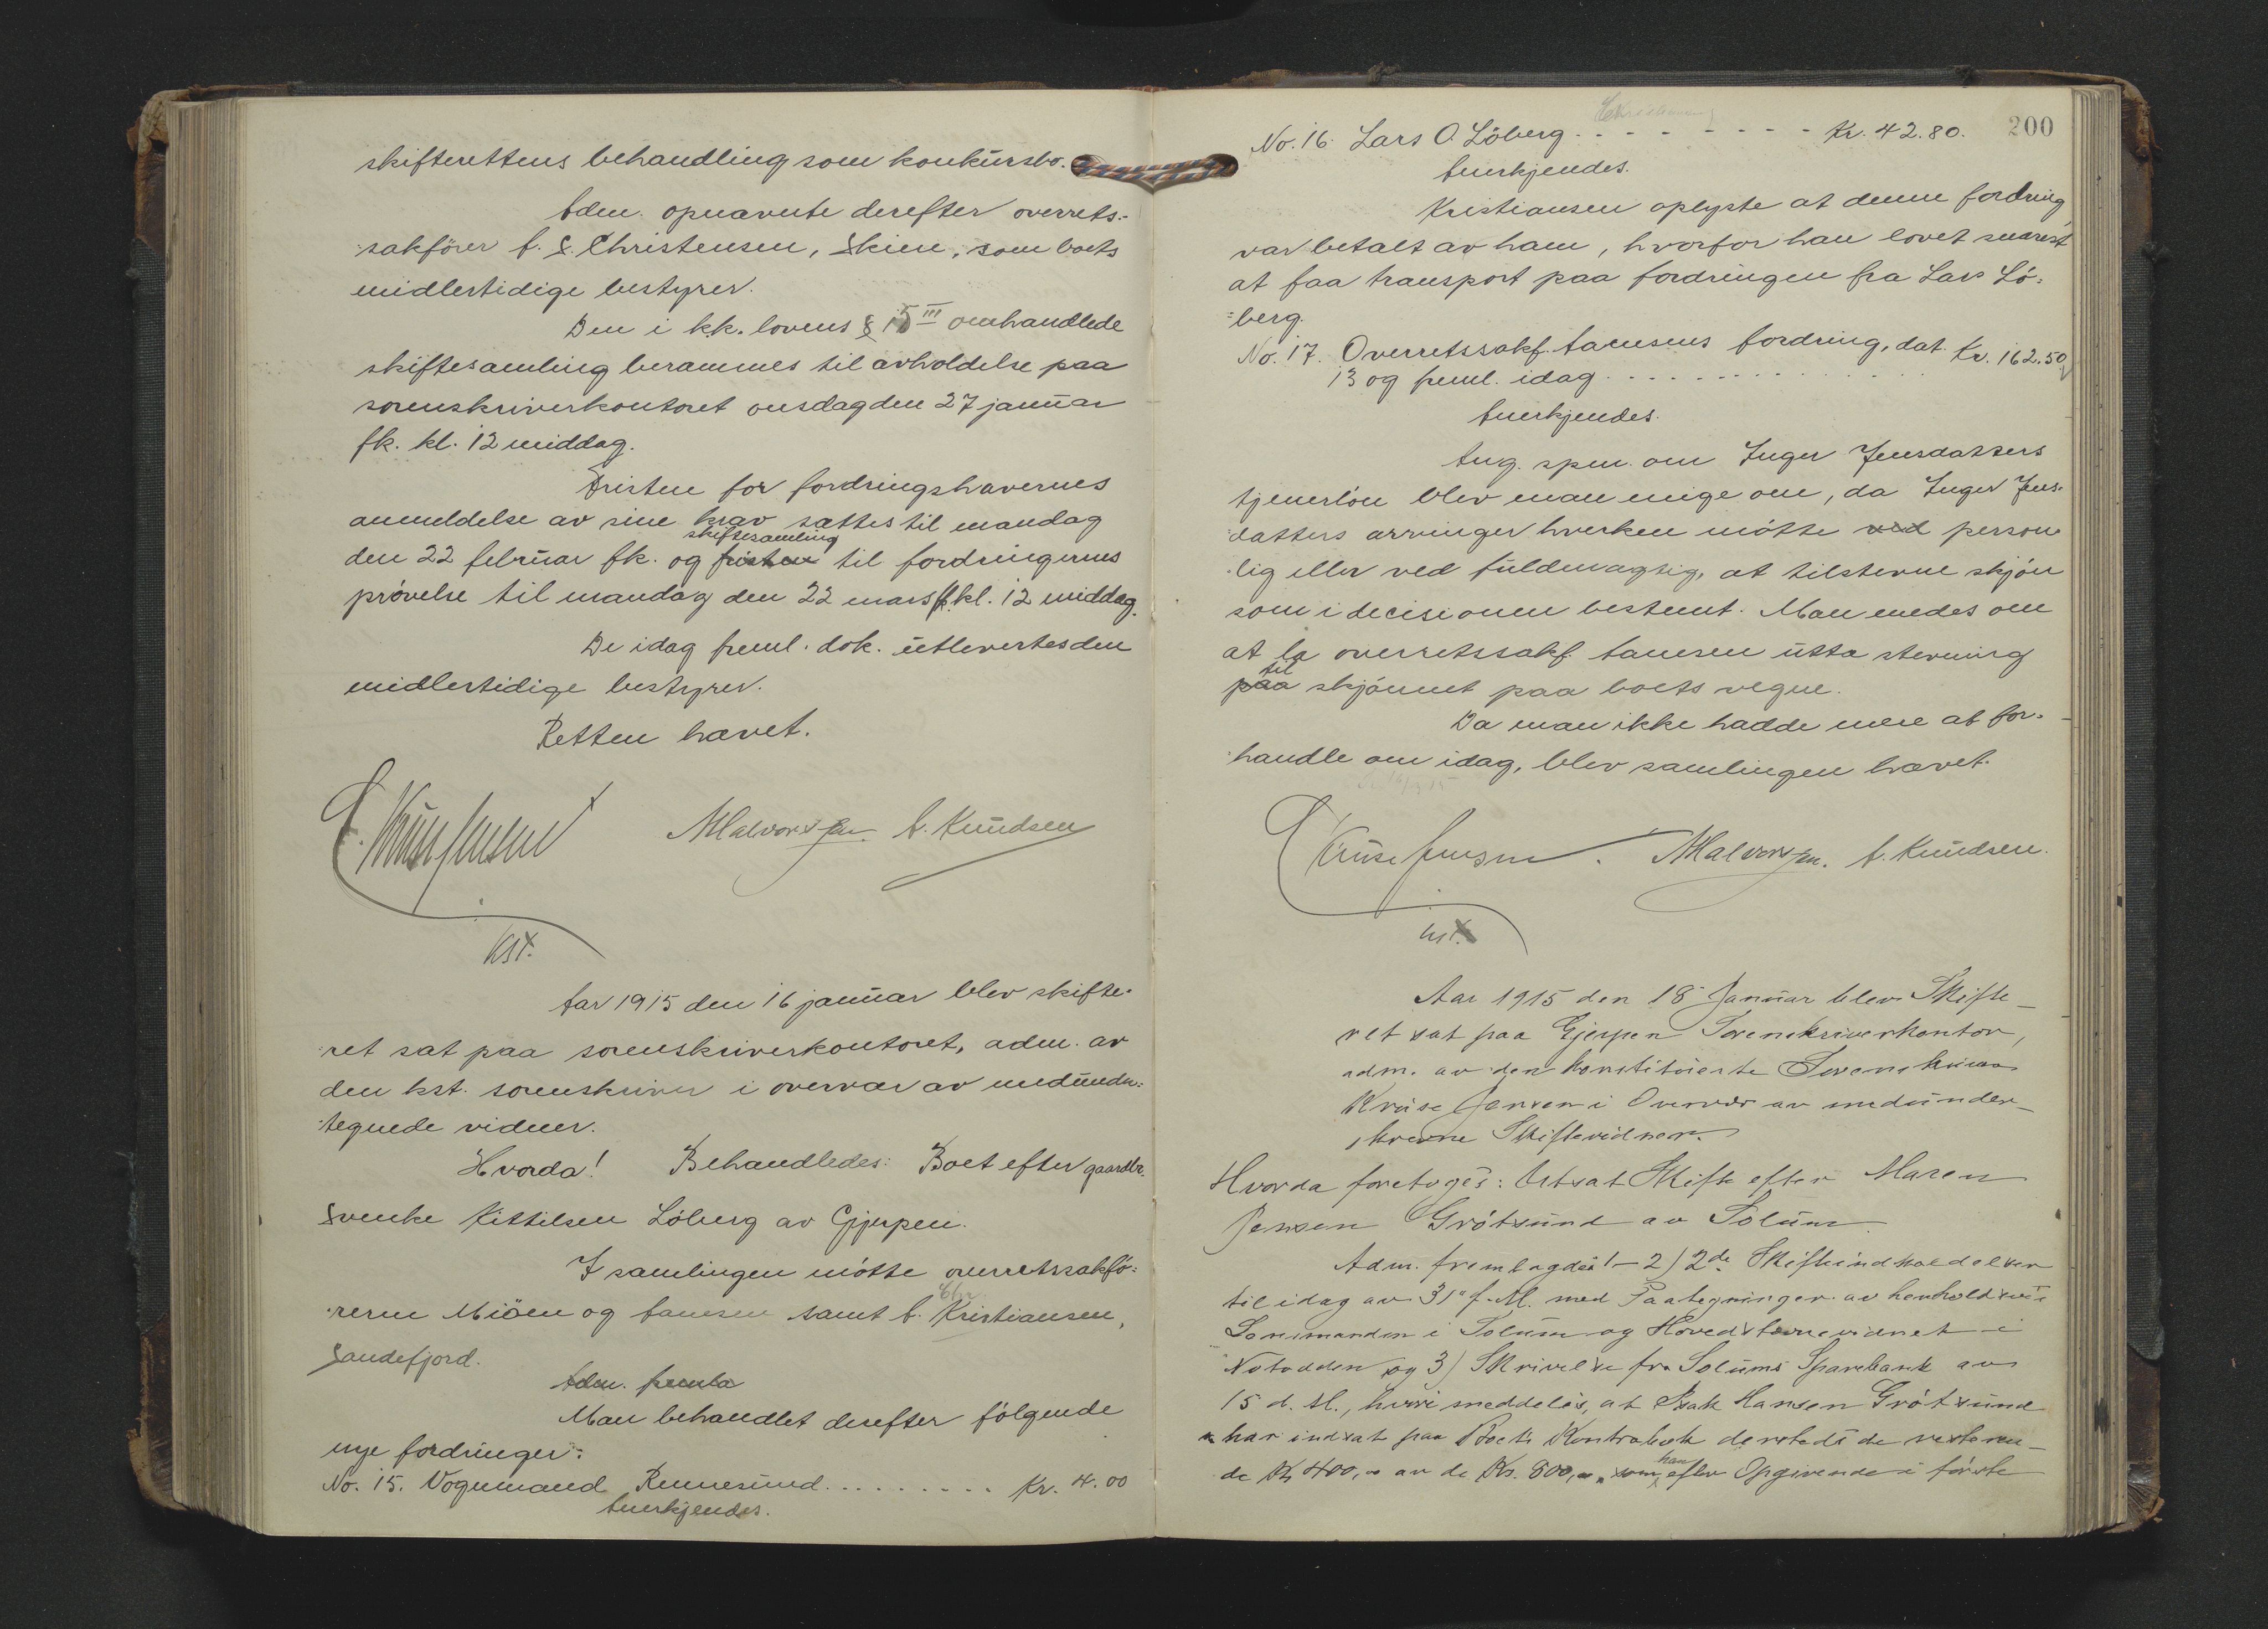 skifterettens behandling som konkursbo.
Adm. opnævnte derefter overrets-
sakförer A. S. Christensen, Skien, som boets
midlertidige bestyrer.
Den i kk. lovens § 15 III omhandlede
skiftesamling berammes til avholdelse paa
sorenskriverkontoret onsdag den 27 januar
fk. kl. 12 middag.
Fristen for fordringshavernes
anmeldelse av sine krav sattes til mandag
skiftesamling
den 22 februar fk. og fristen til fordringernes
prövelse til mandag den 22 mars fk. kl. 12 middag.
De idag freml. dok. utlevertes den
midlertidige bestyrer.
Retten hævet.
Kruse Jensen A Halvorsen. A. Knudsen
kst.
Aar 1915 den 16 januar blev skifte-
ret sat paa sorenskriverkontoret, adm. av
den kst. sorenskriver i overvær av medunder-
tegnede vidner.
Hvorda! Behandledes: Boet efter gaardbr.
Svenke Kittilsen Löberg av Gjerpen.
I samlingen mötte overretssakfö-
Chr.
rerne Miöen og Aamsen samt A. Kristiansen,
Sandefjord.
Adm. fremla
Man behandlet derefter fölgende
nye fordringer:
No. 15. Vognmand Rennesund......... Kr. 4.00
Anerkjendes.
200
No. 16. Lars O. Löberg........ Kr. 42.80.
Anerkjendes.
Kristiansen oplyste at denne fordring
var betalt av ham, hvorfor han lovet snarest
at faa transport paa fordringen fra Lars Lö-
berg.
No. 17. Overretssakf. Aamsens fordring, dat. Kr. 162.50
13 og freml. idag............
Anerkjendes.
Ang. spm. om Inger Jensdatters
tjenerlön blev man enige om, da Inger Jens-
datters arvinger hverken mötte ved person-
lig eller ved fuldmægtig, at tilstevne skjön
som i decisionen bestemt. Man enedes om
at la overretssakf. Aamsen utta stevning
til
paa skjönnet paa boets vegne.
Da man ikke hadde mere at for-
handle om idag, blev samlingen hævet.
Kruse Jensen. A Halvorsen. A. Knudsen.
kst.
Aar 1915 den 18 Januar blev Skifte-
ret sat paa Gjerpen Sorenskriverkontor,
adm. av den konstituerte Sorenskriver
Kruse Jensen i Overvær av medunder-
skrevne Skiftevidner.
Hvorda foretoges: Utsat Skifte efter Maren
Jensen Grötsund av Solum.
Adm. fremlagde 1-2) 2de Skifteindkaldelser
til idag av 31' f. M. med Paategninger av henholdsvis
Lensmanden i Solum og Hovedstevnevidnet i
Notodden og 3) Skrivelse fra Solums Sparebank av
15 d. M., hvori meddeles, at Isak Hansen Grötsund
har indsat paa Boets Kontrabok dersteds de resteren-
han
de Kr 400,00 av de Kr. 800,00, som efter Opgivende i förste